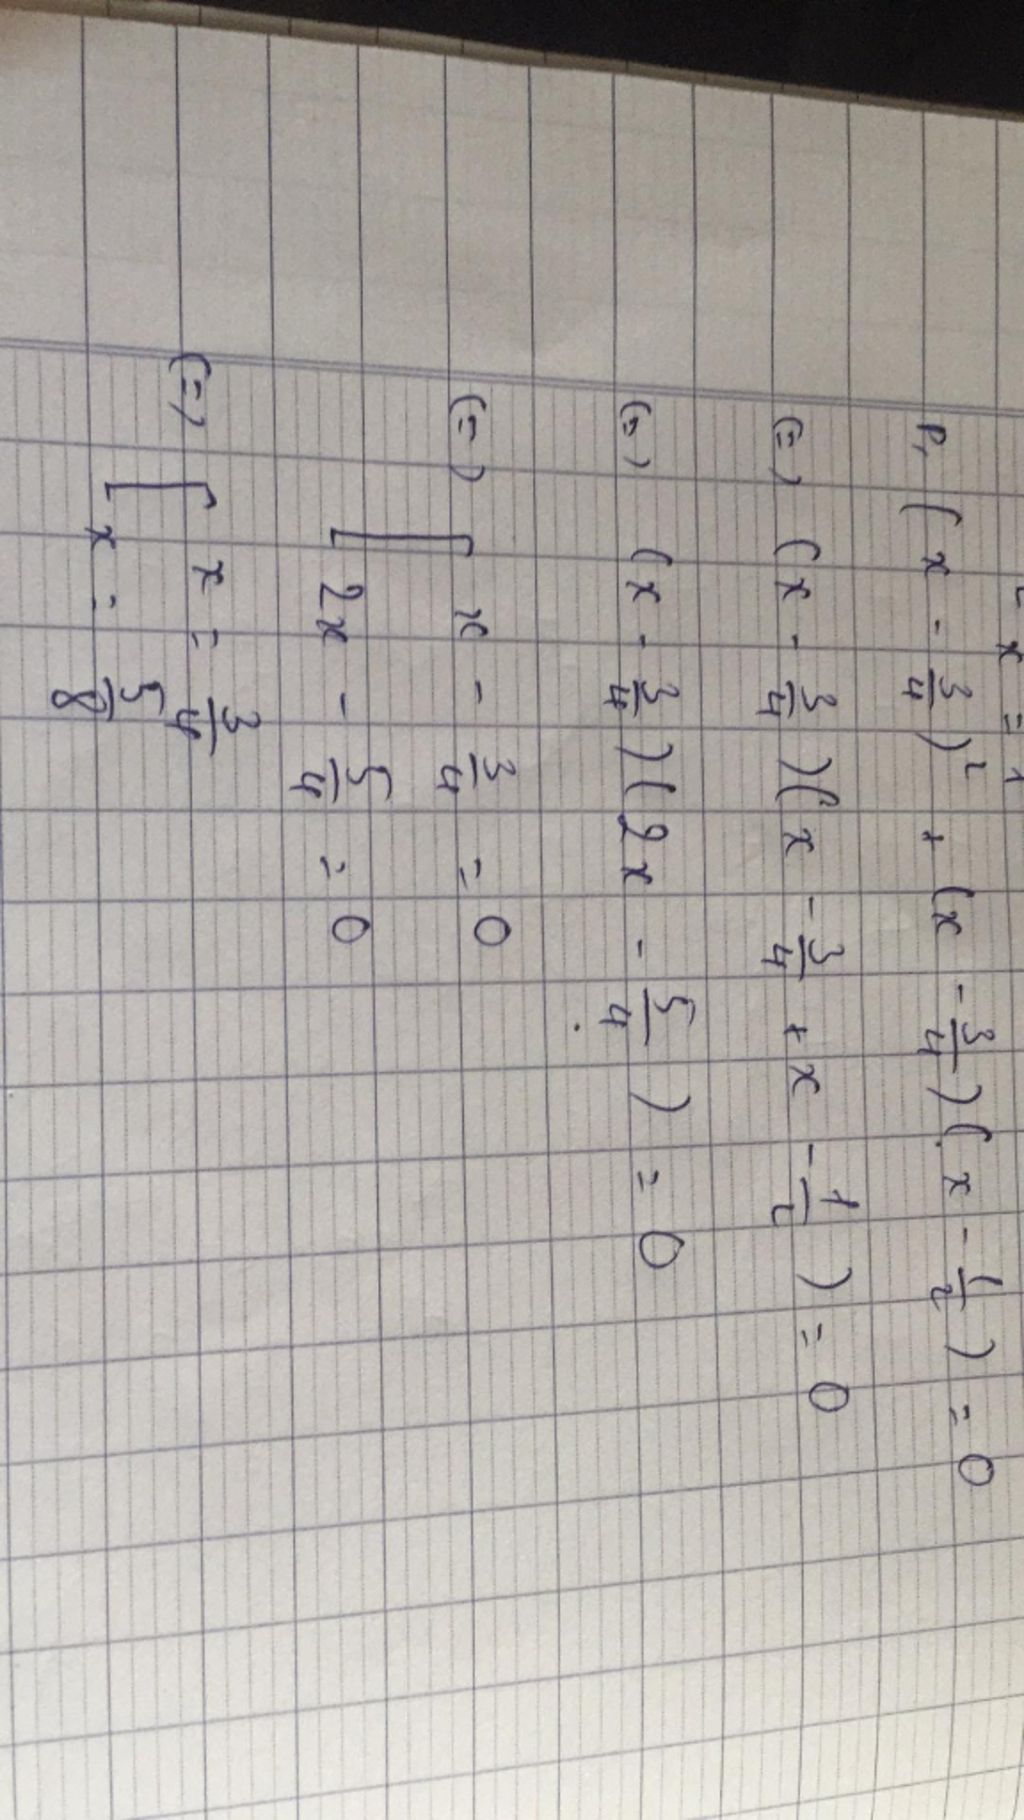 x = 1
P, (x - 3/4)² + (x - 3/4)(x - 1/2) = 0
(=) (x - 3/4)(x - 3/4 + x - 1/2) = 0
(=) (x - 3/4)(2x - 5/4) = 0
(=) [ x - 3/4 = 0
2x - 5/4 = 0
(=) [ x = 3/4
x = 5/8